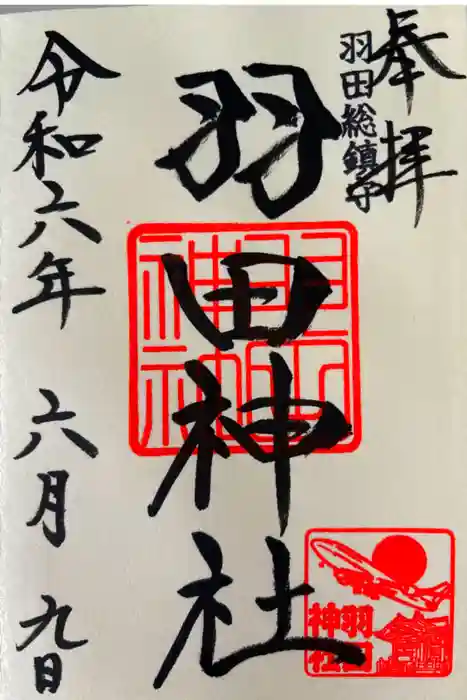 奉拝
羽田総鎮守
羽田神社
羽田神社
羽田
神社
令和六年 六月 九日